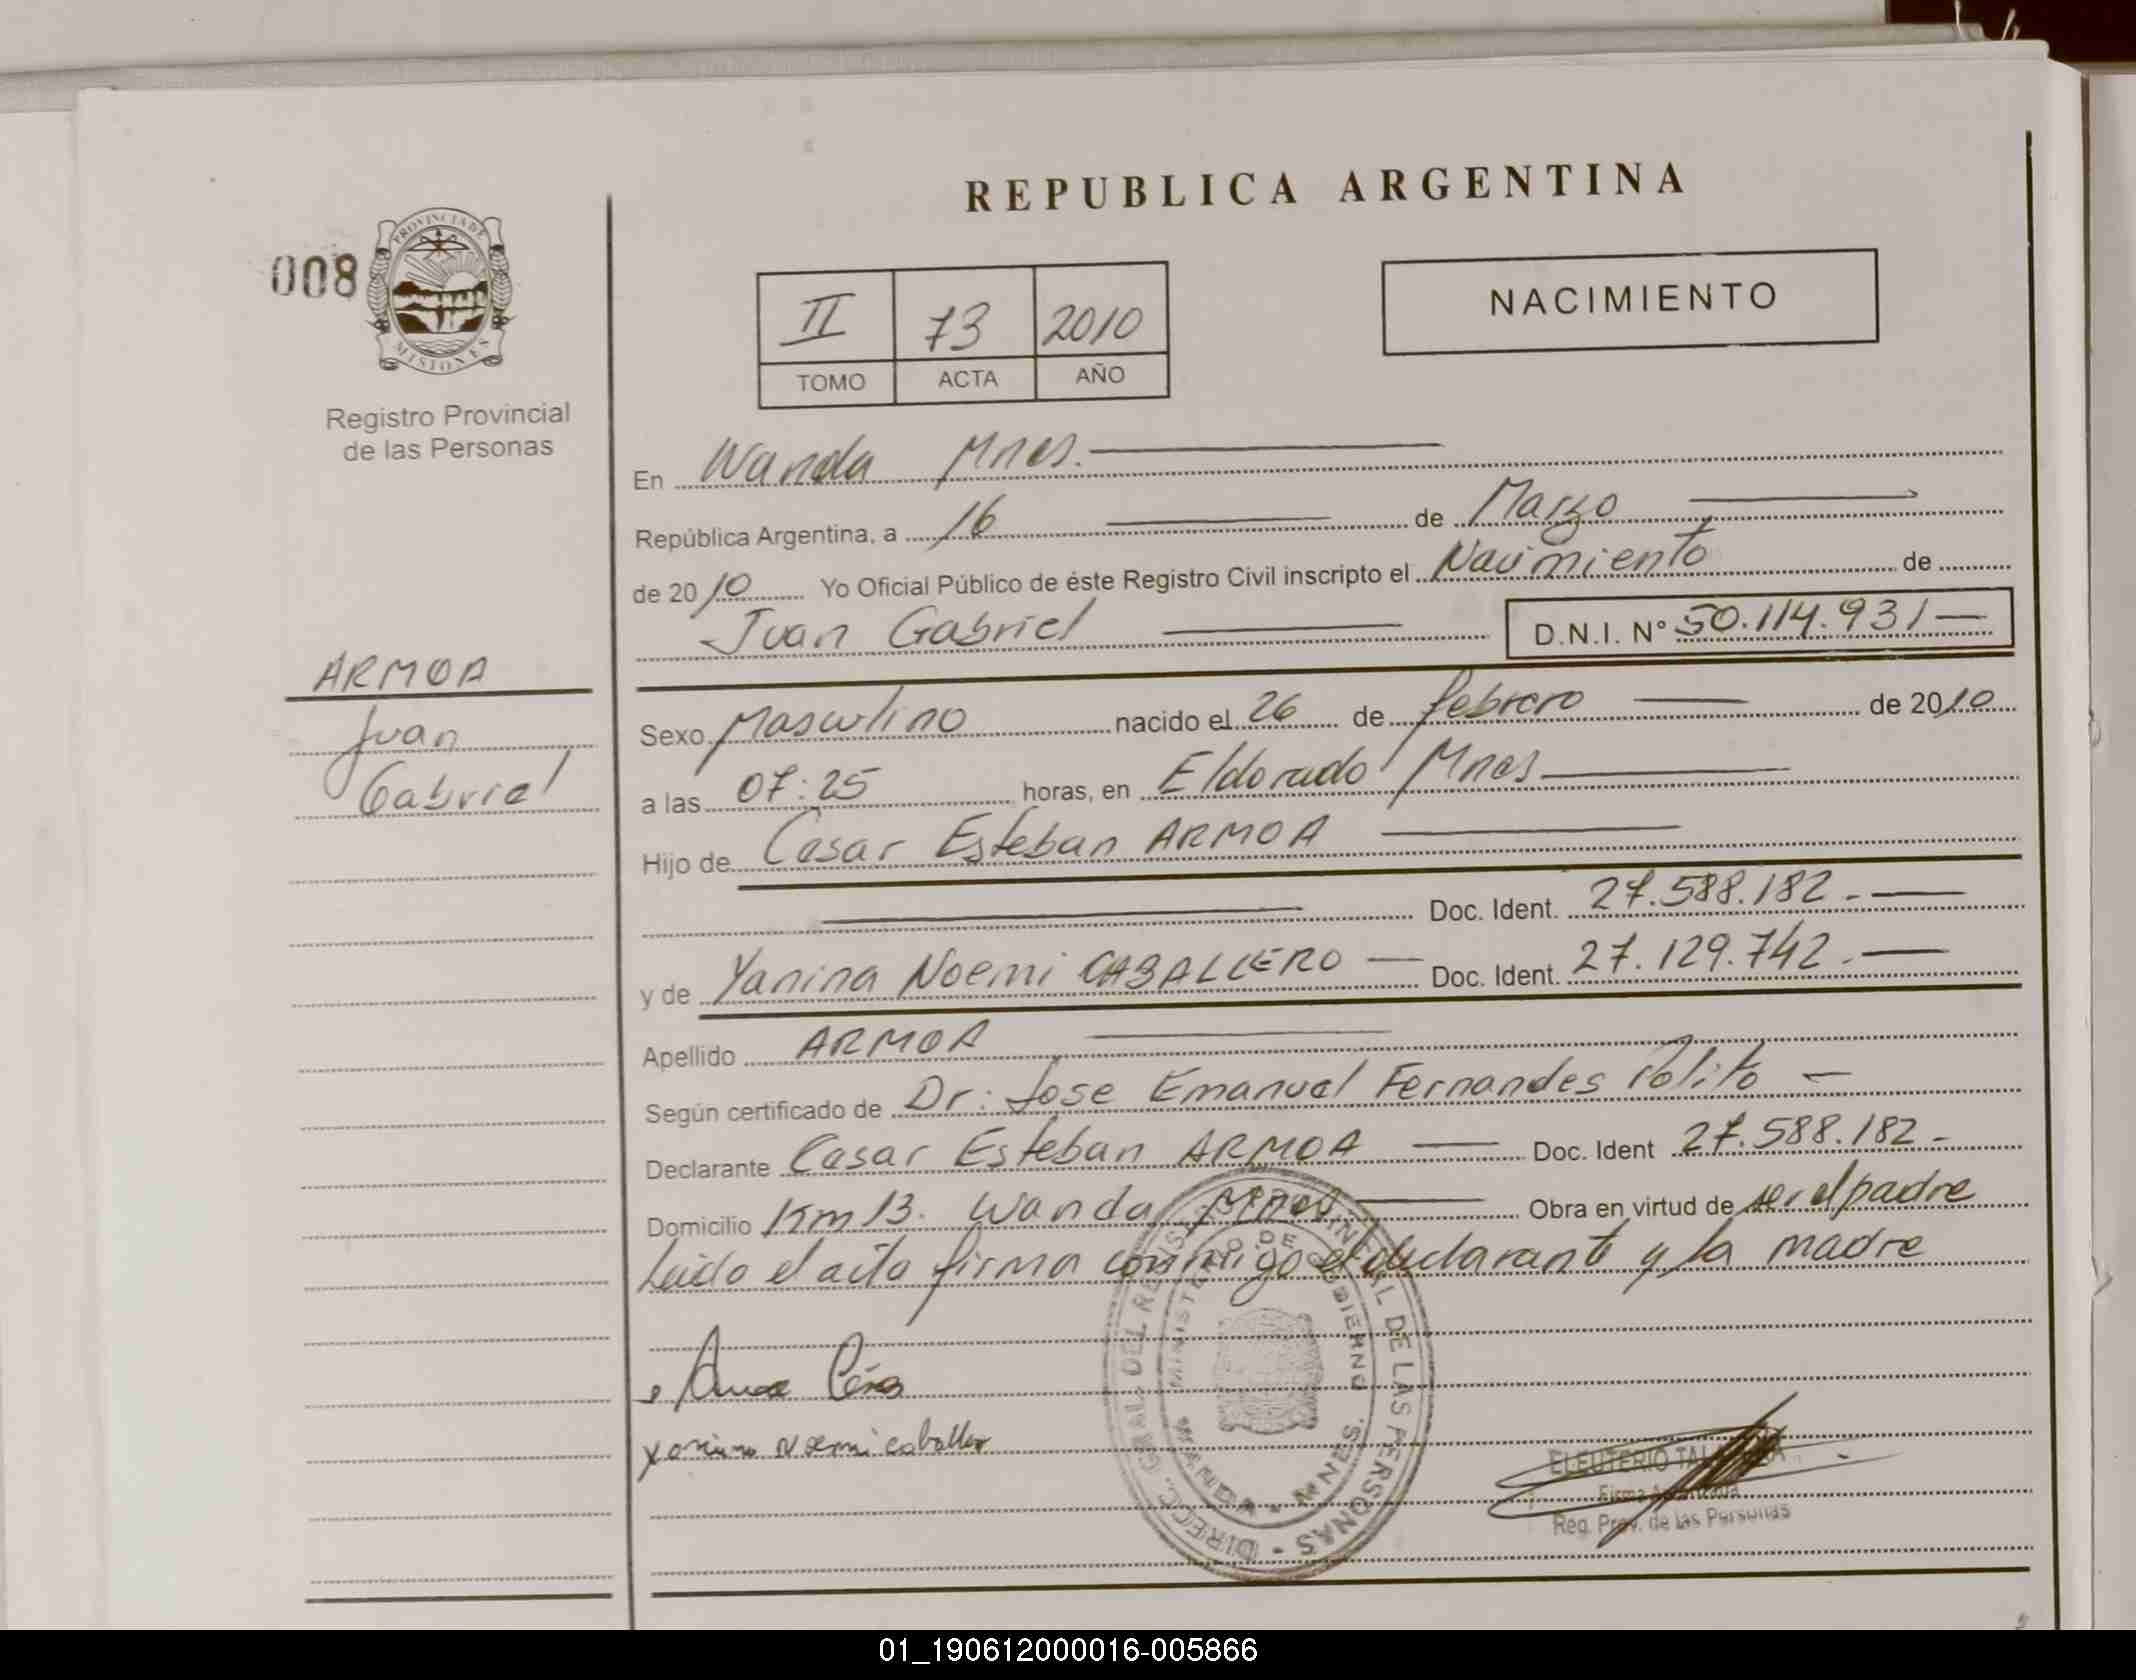 REPUBLICA ARGENTINA
008
PROVINCIA DE
MISIONES
Registro Provincial
de las Personas
II 73 2010
TOMO ACTA AÑO
NACIMIENTO
En Wanda Mnes.
República Argentina, a 16 de Marzo
de 2010 Yo Oficial Público de éste Registro Civil inscripto el Nacimiento de
Juan Gabriel D.N.I. N° 50.114.931
ARMOA
Juan
Gabriel
Sexo Masculino nacido el 26 de febrero de 2010
a las 07:25 horas, en Eldorado Mnes
Hijo de Cesar Esteban ARMOA
Doc. Ident. 27.588.182.-
y de Yanina Noemi CABALLERO Doc. Ident. 27.129.742.-
Apellido ARMOA
Según certificado de Dr: Jose Emanuel Fernandes Polito
Declarante Cesar Esteban ARMOA Doc. Ident 27.588.182-
Domicilio Km 13. Wanda Mnes Obra en virtud de ser el padre
Leido el acta firma conmigo el declarante y la madre
DIREC. GRAL. DEL REGIST. PROVINCIAL DE LAS PERSONAS
MINISTERIO DE GOBIERNO
WANDA - MNES.
yanina Noemi caballero
ELEUTERIO
Firma
Reg. Prov. de las Personas
01_190612000016-005866